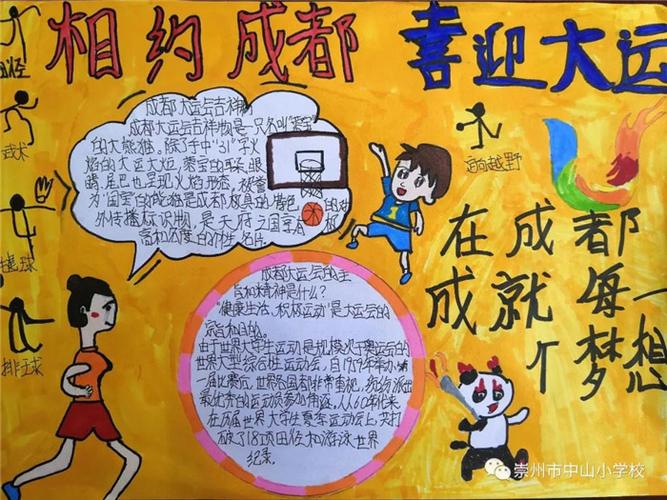 相约成都 喜迎大运
田径
武术
排球
定向越野
成都大运会吉祥物
成都大运会吉祥物是一只名叫"蓉宝"
的大熊猫。除了手中"31"字火
焰的大运火炬,蓉宝的耳朵、眼
睛、尾巴也呈现火焰形态。被誉
为"国宝"的熊猫是成都极具的特色的对
外传播标识物,是天府之国享有
高知名度的个性名片
在成都
成就每一
个梦想
成都大运会的宗
旨和精神是什么?
"健康生活、积极运动"是大运会的
宗旨和目的。
由于世界大学生运动是规模次于奥运会的
世界大型综合性运动会,自1959年举办第一
届比赛后,世界各国都非常重视,纷纷派出
最优秀的运动员参加角逐,从60年代来
在历届世界大学生夏季运动会上,共打
破了18项田径和游泳世界
纪录。
崇州市中山小学校